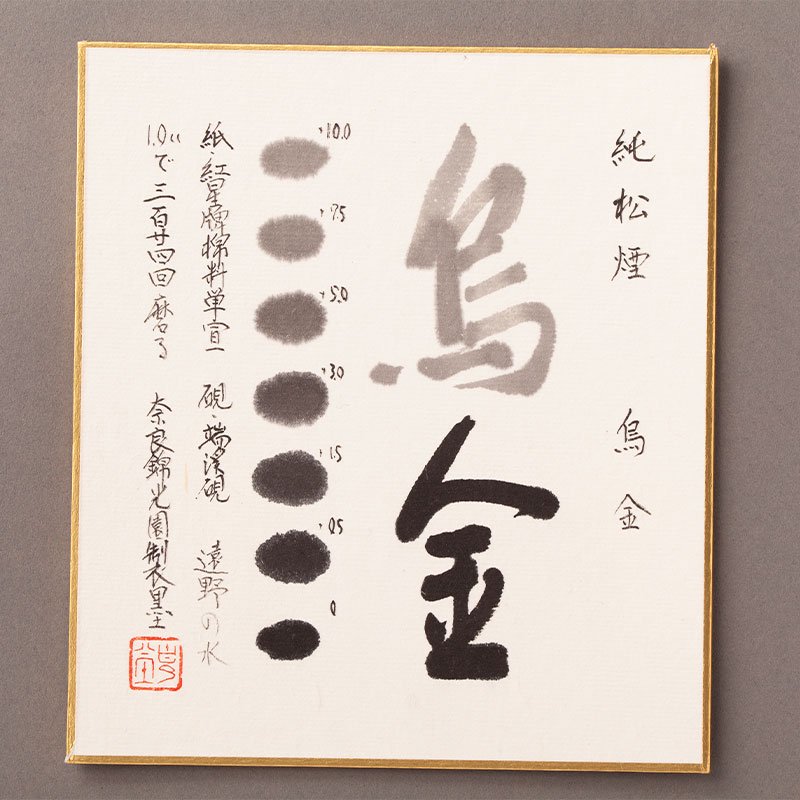 純松煙 烏金
烏金
+10.0
+7.5
+5.0
+3.0
+1.5
+0.5
0
紙・紅星牌棉料単宣 硯・端渓硯 遠野の水
1.0㏄で三百廿四回磨る 奈良錦光園製墨